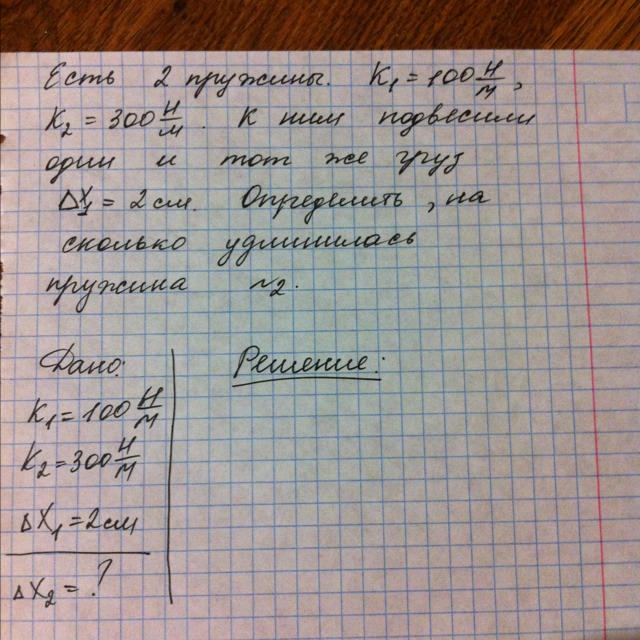 Есть 2 пружины. K₁ = 100 Н/м,
K₂ = 300 Н/м. К ним подвесили
один и тот же груз
ΔX₁ = 2 см. Определить, на
сколько удлинилась
пружина ~2.
Дано:
K₁ = 100 Н/м
K₂ = 300 Н/м
ΔX₁ = 2 см
ΔX₂ = ?
Решение: